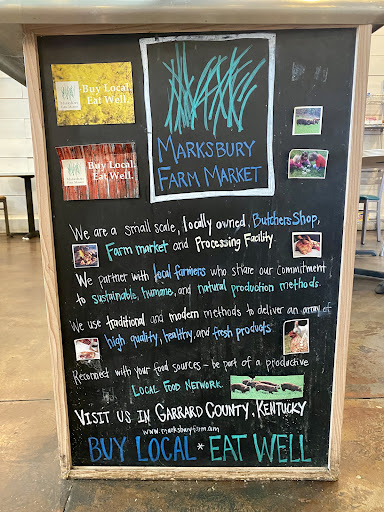 Buy Local.
Eat Well.
Buy Local.
Eat Well.
MARKSBURY
FARM MARKET
We are a small scale, locally owned, Butchers Shop,
Farm market and Processing Facility.
We partner with local farmers who share our commitment
to sustainable, humane, and natural production methods.
We use traditional and modern methods to deliver an array of
high quality, healthy, and fresh products
Reconnect with your food sources - be part of a productive
LOCAL FOOD NETWORK
VISIT US IN GARRARD COUNTY, KENTUCKY
www.marksburyfarm.com
BUY LOCAL * EAT WELL